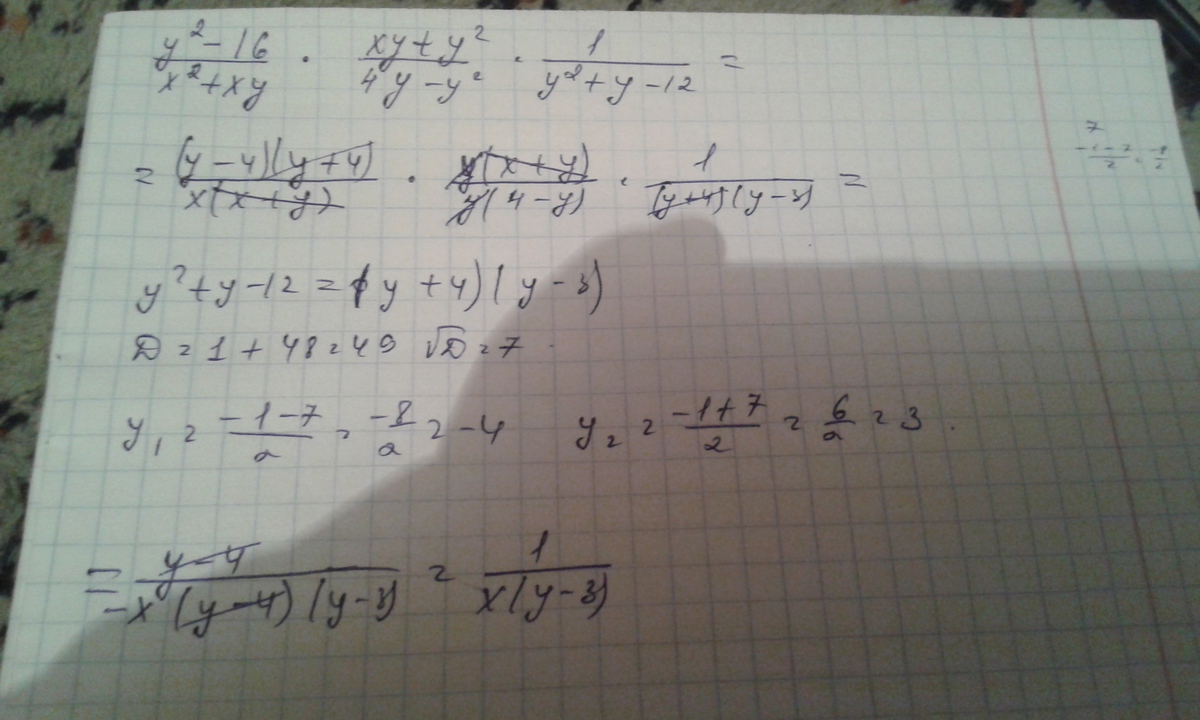 (y² - 16)/(x² + xy) · (xy + y²)/(4y - y²) · 1/(y² + y - 12) =
= (y - 4)(y + 4)/x(x + y) · y(x + y)/y(4 - y) · 1/(y + 4)(y - 3) =
7
(-1 - 7)/2 = -8/2
y² + y - 12 = (y + 4)(y - 3)
D = 1 + 48 = 49 √D = 7
y₁ = (-1 - 7)/2 = -8/2 = -4 y₂ = (-1 + 7)/2 = 6/2 = 3.
= (y - 4)/-x(y - 4)(y - 3) = 1/x(y - 3)